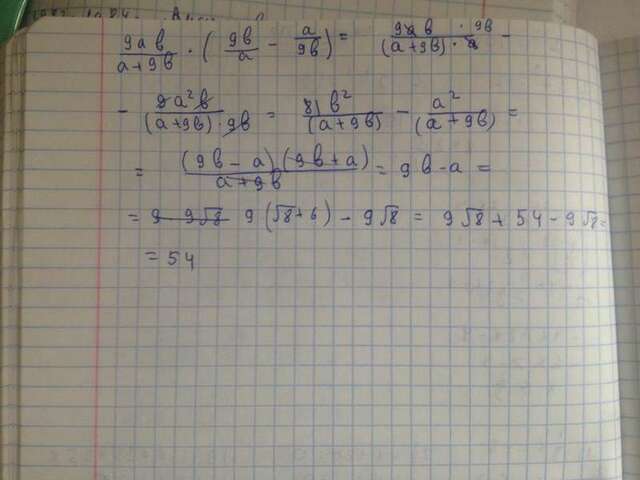 9ab/(a+9b) · (9b/a − a/9b) = 9ab · 9b/((a+9b) · a) −
− 9a²b/((a+9b) · 9b) = 81b²/(a+9b) − a²/(a+9b) =
= (9b−a)(9b+a)/(a+9b) = 9b−a =
= 9(√8+6) − 9√8 = 9√8 + 54 − 9√8 =
= 54